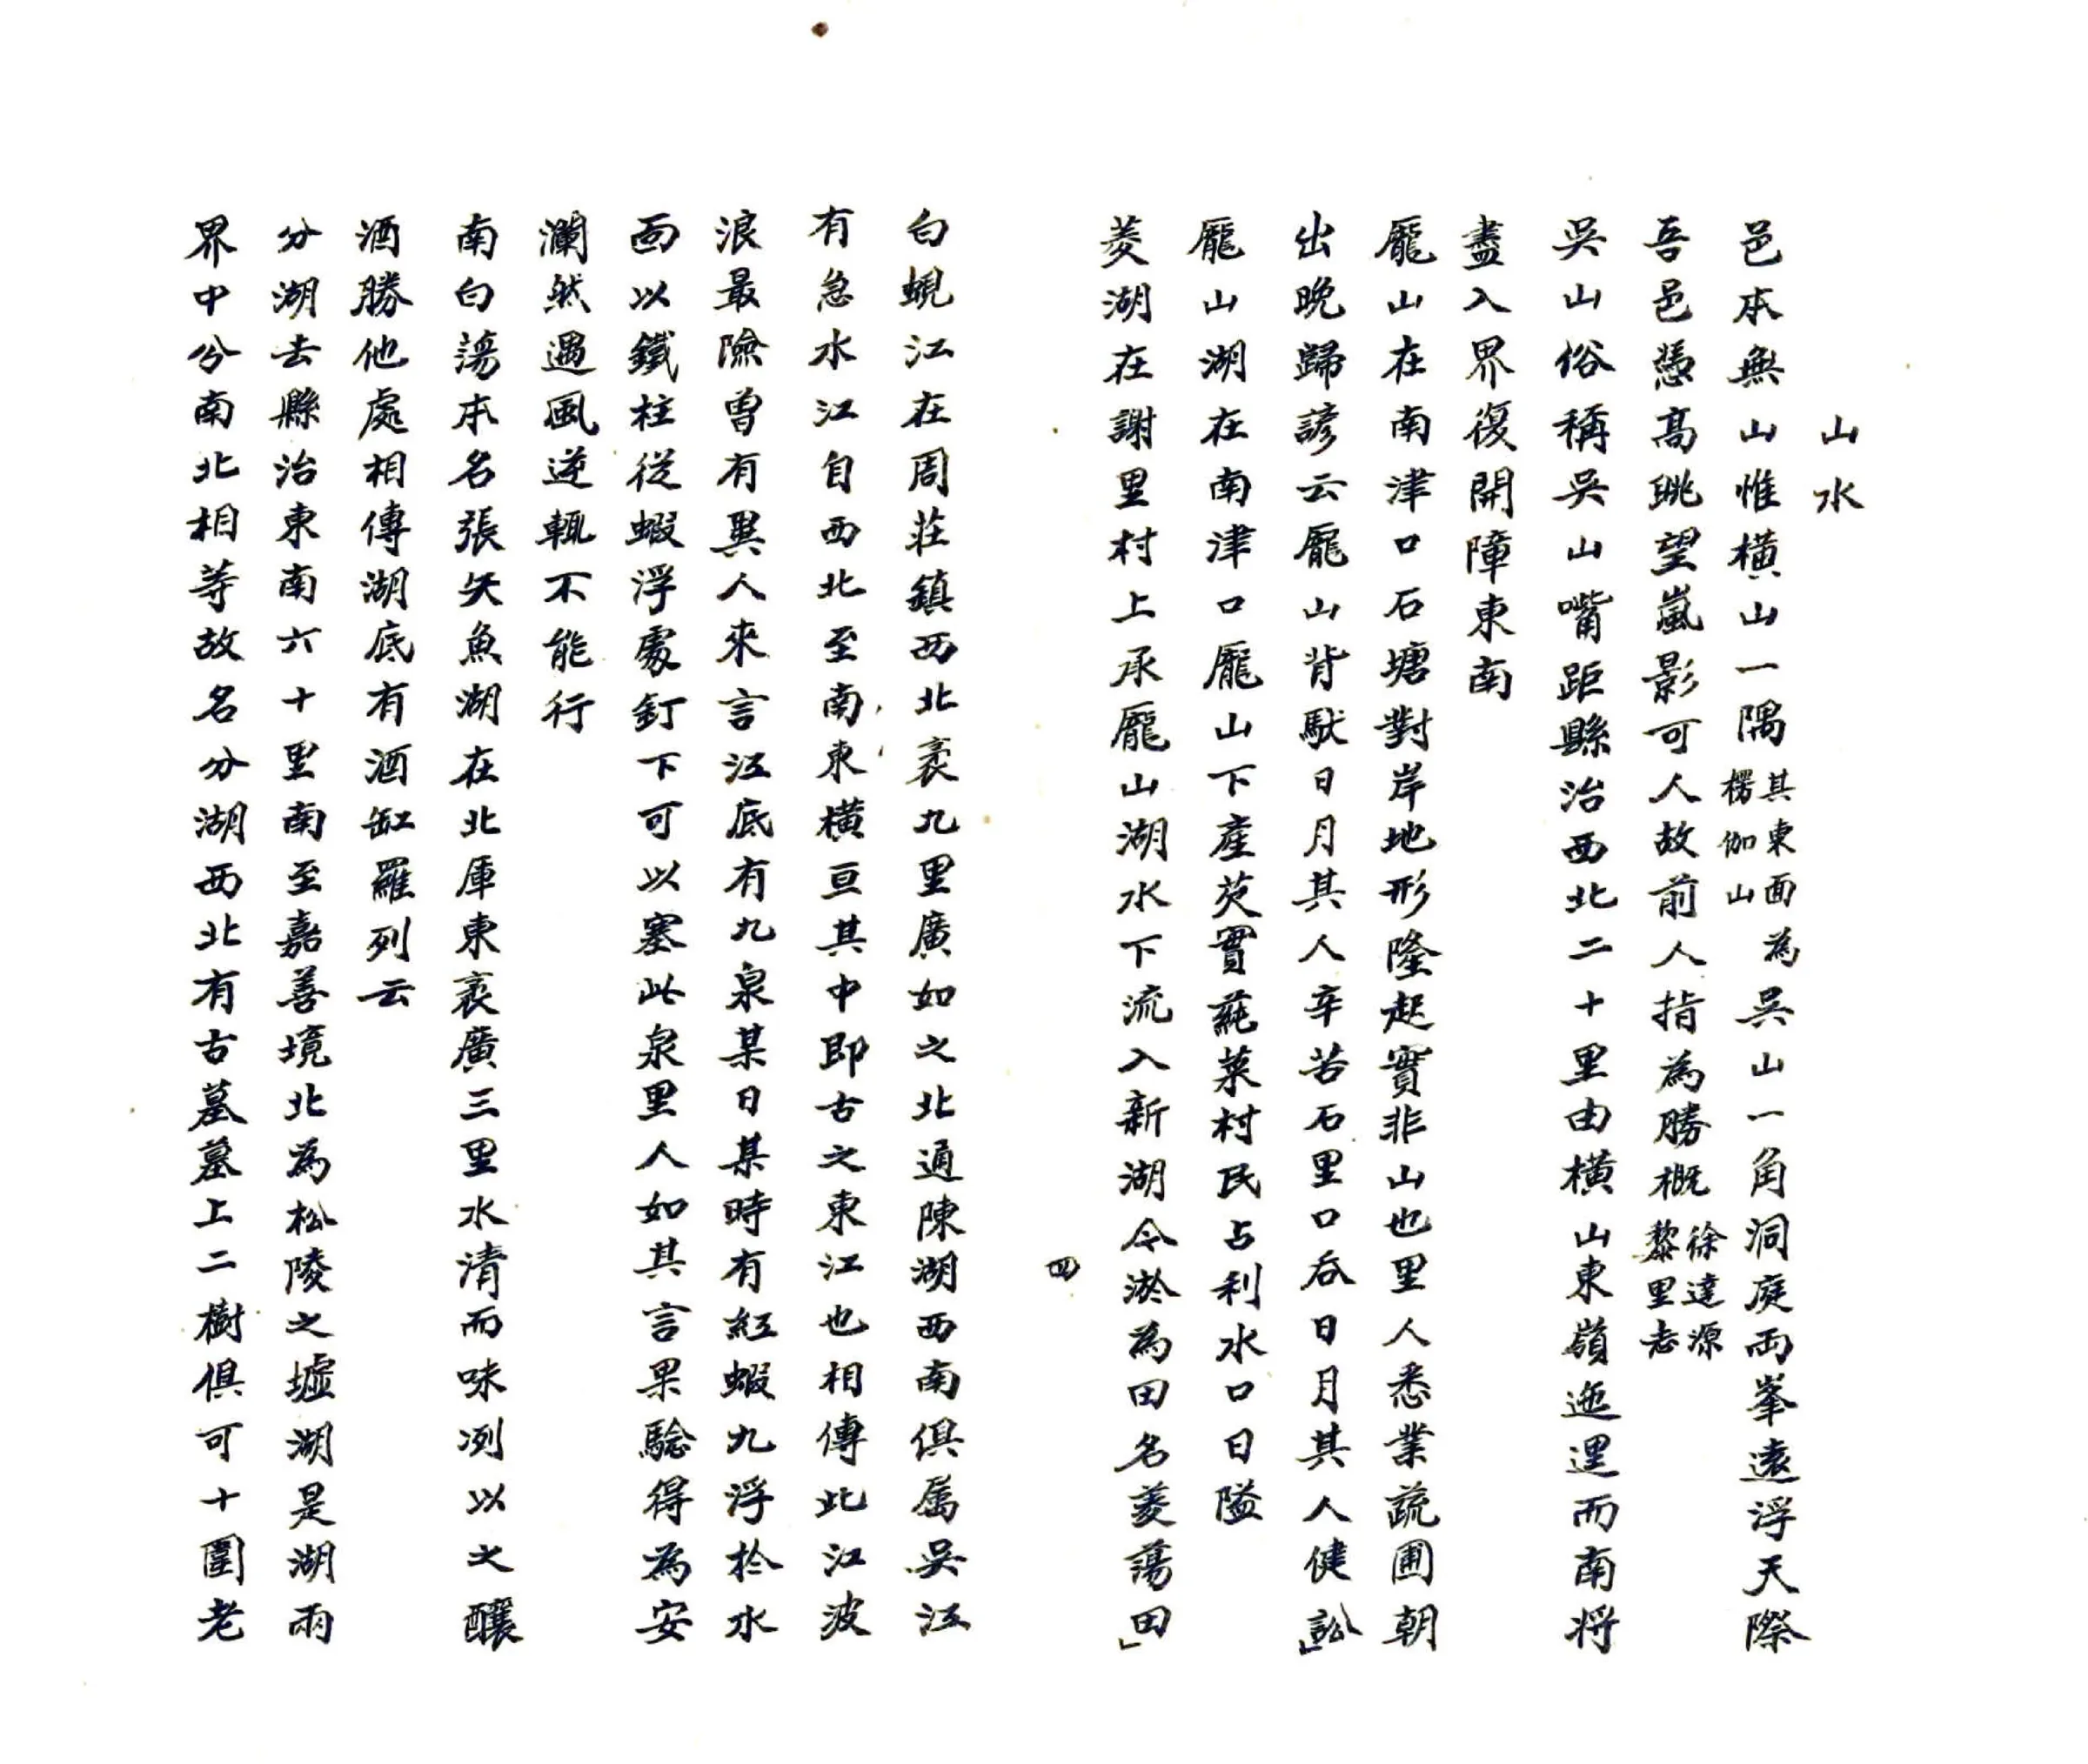 山水
邑本無山惟橫山一隅其東面為楞伽山吳山一角洞庭兩峯遠浮天際
吾邑憑高眺望嵐影可人故前人指為勝概徐達源黎里志
吳山俗稱吳山嘴距縣治西北二十里由橫山東嶺迤邐而南將
盡入界復開障東南
龐山在南津口石塘對岸地形隆起實非山也里人悉業蔬圃朝
出晚歸諺云龐山背馱日月其人辛苦石里口吞日月其人健訟」
龐山湖在南津口龐山下產芡實蒓菜村民占利水口日隘
菱湖在謝里村上承龐山湖水下流入新湖今淤為田名菱蕩田」
四
白蜆江在周莊鎮西北袤九里廣如之北通陳湖西南俱屬吳江
有急水江自西北至南東橫亘其中即古之東江也相傳此江波
浪最險曾有異人來言江底有九泉某日某時有紅蝦九浮於水
面以鐵柱從蝦浮處釘下可以塞此泉里人如其言果驗得為安
瀾然遇風逆輒不能行
南白蕩本名張矢魚湖在北厙東袤廣三里水清而味冽以之釀
酒勝他處相傳湖底有酒缸羅列云
分湖去縣治東南六十里南至嘉善境北為松陵之墟湖是湖兩
界中分南北相等故名分湖西北有古墓墓上二樹俱可十圍老